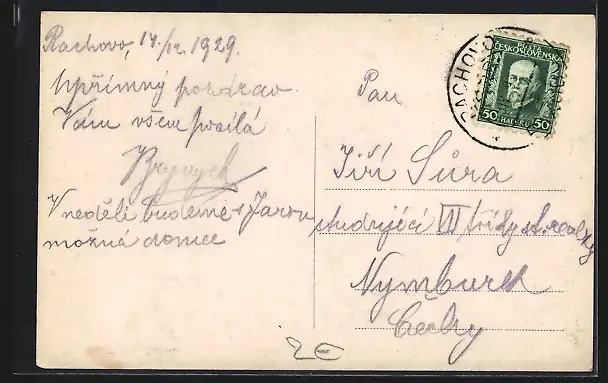 Rachovo, 14/12. 1929.
Upřímný pozdrav
Vám všem posílá
V neděli budeme s Jarou
možná doma
Pan
Jiří Sůra
studující VII třídy st. realky
Nymburk
Čechy
2€
RACHOVO
POŠTA
ČESKOSLOVENSKÁ
50 HALÉŘŮ 50